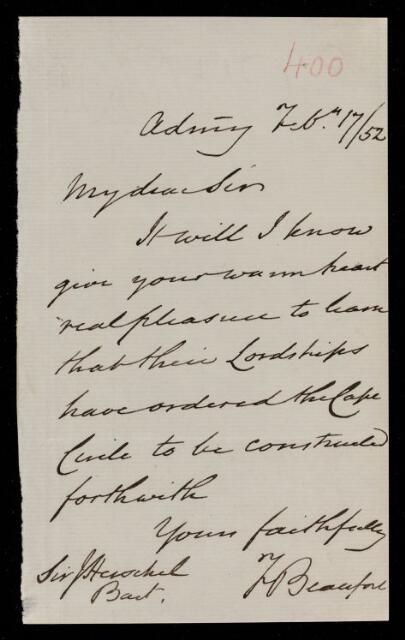 400
Admty Feb. 17/52
My dear Sir
It will I know
give your warm heart
real pleasure to learn
that their Lordships
have ordered the Cape
Circle to be constructed
forthwith
Yours faithfully
F Beaufort
Sir J Herschel
Bart.